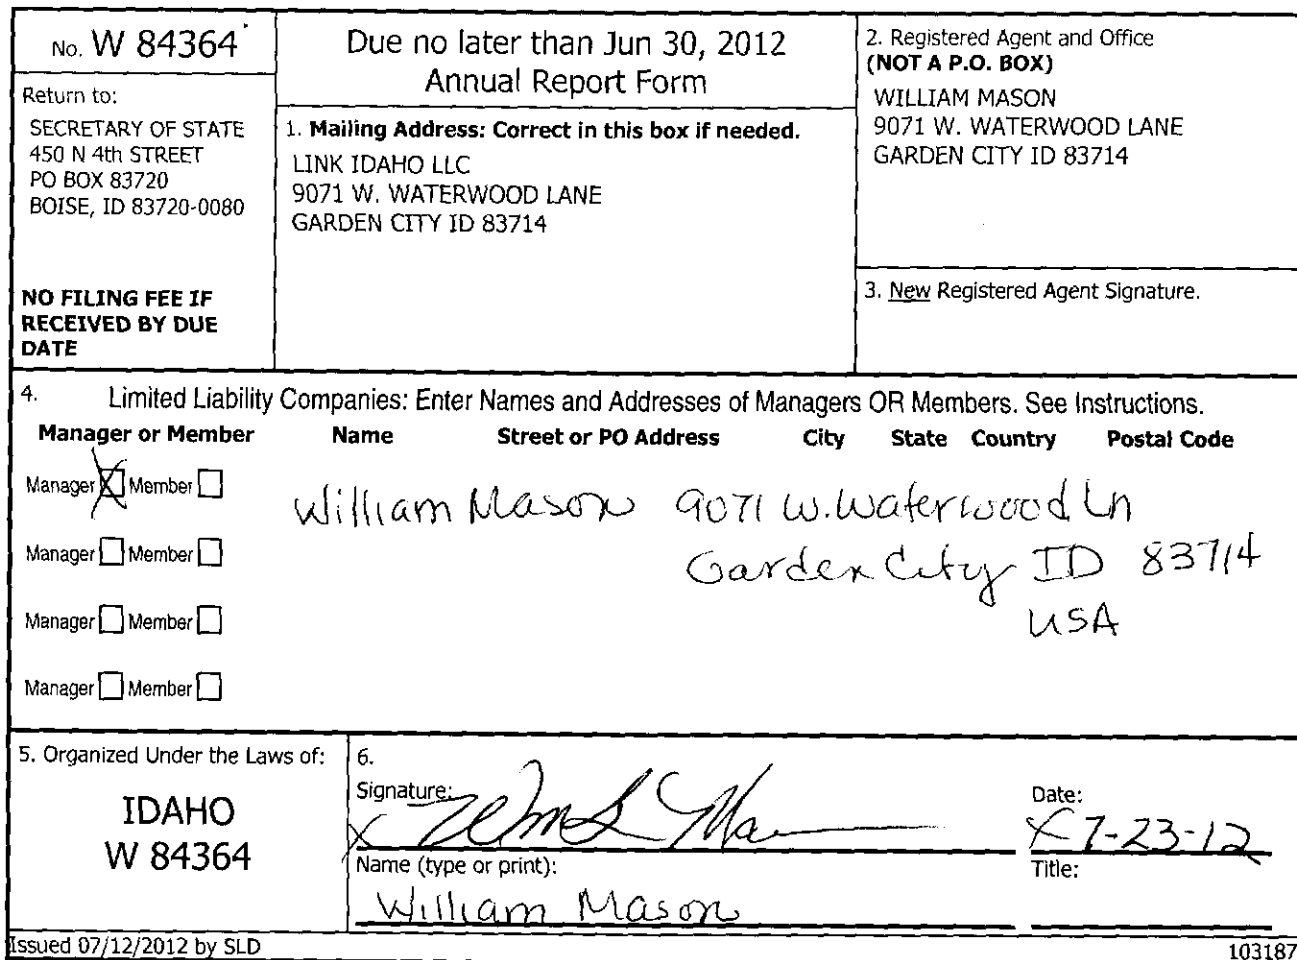 No. W 84364
Return to:
SECRETARY OF STATE
450 N 4th STREET
PO BOX 83720
BOISE, ID 83720-0080
NO FILING FEE IF
RECEIVED BY DUE
DATE
Due no later than Jun 30, 2012
Annual Report Form
1. Mailing Address: Correct in this box if needed.
LINK IDAHO LLC
9071 W. WATERWOOD LANE
GARDEN CITY ID 83714
2. Registered Agent and Office
(NOT A P.O. BOX)
WILLIAM MASON
9071 W. WATERWOOD LANE
GARDEN CITY ID 83714
3. New Registered Agent Signature.
4. Limited Liability Companies: Enter Names and Addresses of Managers OR Members. See Instructions.
Manager or Member Name Street or PO Address City State Country Postal Code
Manager X Member
William Mason 9071 W. Waterwood Ln
Manager Member
Garden City ID 83714
Manager Member
USA
Manager Member
5. Organized Under the Laws of:
IDAHO
W 84364
6.
Signature:
X Wm S Ma
Date:
X 7-23-12
Name (type or print):
William Mason
Title:
Issued 07/12/2012 by SLD
103187